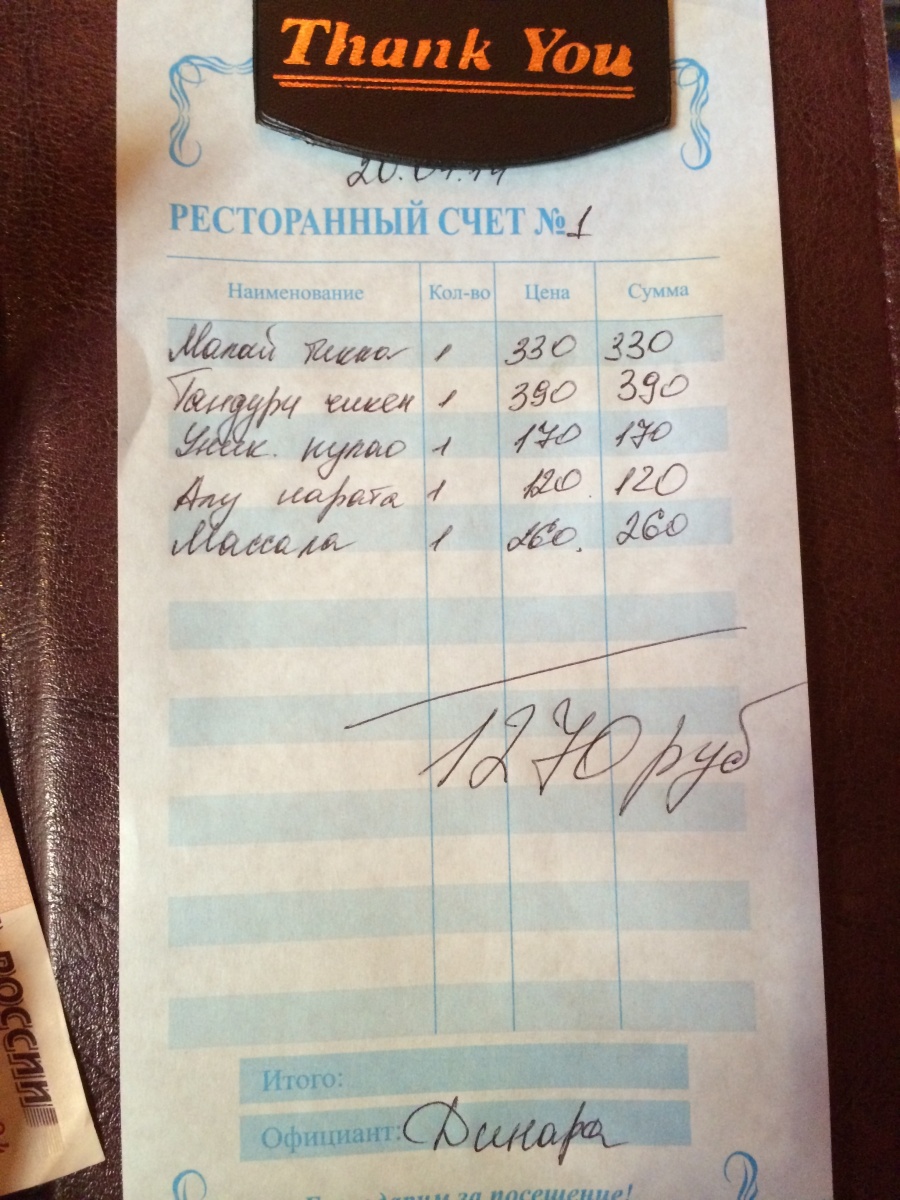 Thank You
РЕСТОРАННЫЙ СЧЕТ №1
Наименование Кол-во Цена Сумма
Малай тикка 1 330 330
Тандури чикен 1 390 390
пулао 1 170 170
Алу парата 1 120. 120
Массала 1 260. 260
1270 руб
Итого:
Официант: Динара
за посещение!
РОССИЙ